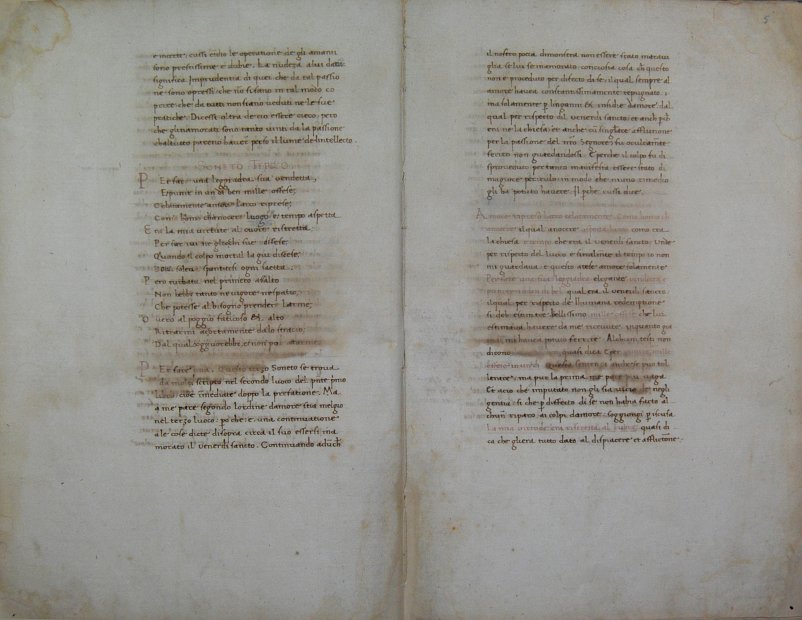 e incerte, cussi ciecho le operatione de gli amanti
sono prestissime e dubie. La nudeza alui data
significa Imprudentia di quei che da tal passio
ne sono opressi che no si sano in tal modo co
prire che da tutti non siano veduti ne le sue
pratiche. Dicessi oltra de cio essere cieco, pero
che gl inamorati sono tanto vinti da la passione
ch al tutto pareno haver perso il lume de intellecto.
SONETO TERZO
Per far una leggiadra sua vendetta,
E punire in un di ben mille offese,
Celatamente amor l arco riprese,
Com homo ch a nocere luogo e tempo aspetta
Era la mia virtute al cuore ristretta
Per far ivi ne gliochi sue difese
Quando il colpo mortal la giu discese,
Dove solea spuntarsi ogni saetta.
Pero turbata nel primiero asalto
Non hebbe tanto ne vigore ne spatio,
Che potesse al bisogno prender l arme,
O vero al poggio faticoso et alto
Ritrarmi acortamente dalo stratio,
Dal qual oggi vorrebbe, e non po
Per fare una. Questo terzo Soneto se trova
da molti scripto nel secondo luoco del pnte primo
luoco, cioe inediate doppo la prefatione. Ma
a me pare segondo l ordine d amore stia meglio
nel terzo luoco: po che e una continuatione
a le cose dicte disopra circa il suo essersi ina
morato il venerdi sancto. Continuando
il nostro poeta dimonstra non essere stato maravi
glia se lui se inamorato, conciosia cosa ch questo
non e proceduto per difecto di se, il qual sempre al
amore havea constantissimamente repugnato,
ma solamente p inganni et insidie d amore, dal
qual per rispecto del venerdi sancto, et anch p ch
era ne la chiesa, et anche cu singlare afflictione
per la passione del nro Signore, fu occultamte
ferito non guardandosi. E perche il colpo fu di
sproveduto, pertanto manifesta essere stato di
magiore periculo in modo che niuno rimedio
gli ha potuto havere. Il pche cussi dice.
Amore riprese l arco celatamente, Como homo ch
a nocere il qual a nocere aspecta luoco como era
la chiesa e tempo che era il venerdi sancto. Utile
per rispecto del luoco, e similmte el tempo io non
mi guardava, e questo atese amore solamente
Per fare una sua leggiadra elegante vendetta e
punire in un di ben qual era il venerdi sancto
il qual per rispecto de l humana redemptione
si debe estimare bellissimo mille offese che lui
estimava havere da me ricevute, inquanto gia
mai mi haveva potuto ferire. Alchuni testi non
dicono quasi dica e per mille
offese inanzi Questo senso si anche se puo tol
lerare, ma pur la prima me pare piu vaga.
Et acio che imputato non gli sia vilta, ne negli
gentia, si che p difecto di se non habia facto al
chun riparo al colpo d amore, soggiongi p iscusa
La mia virtude era ristretta al cuore quasi di
ca che gliera tutto dato al dispiacere et afflictione